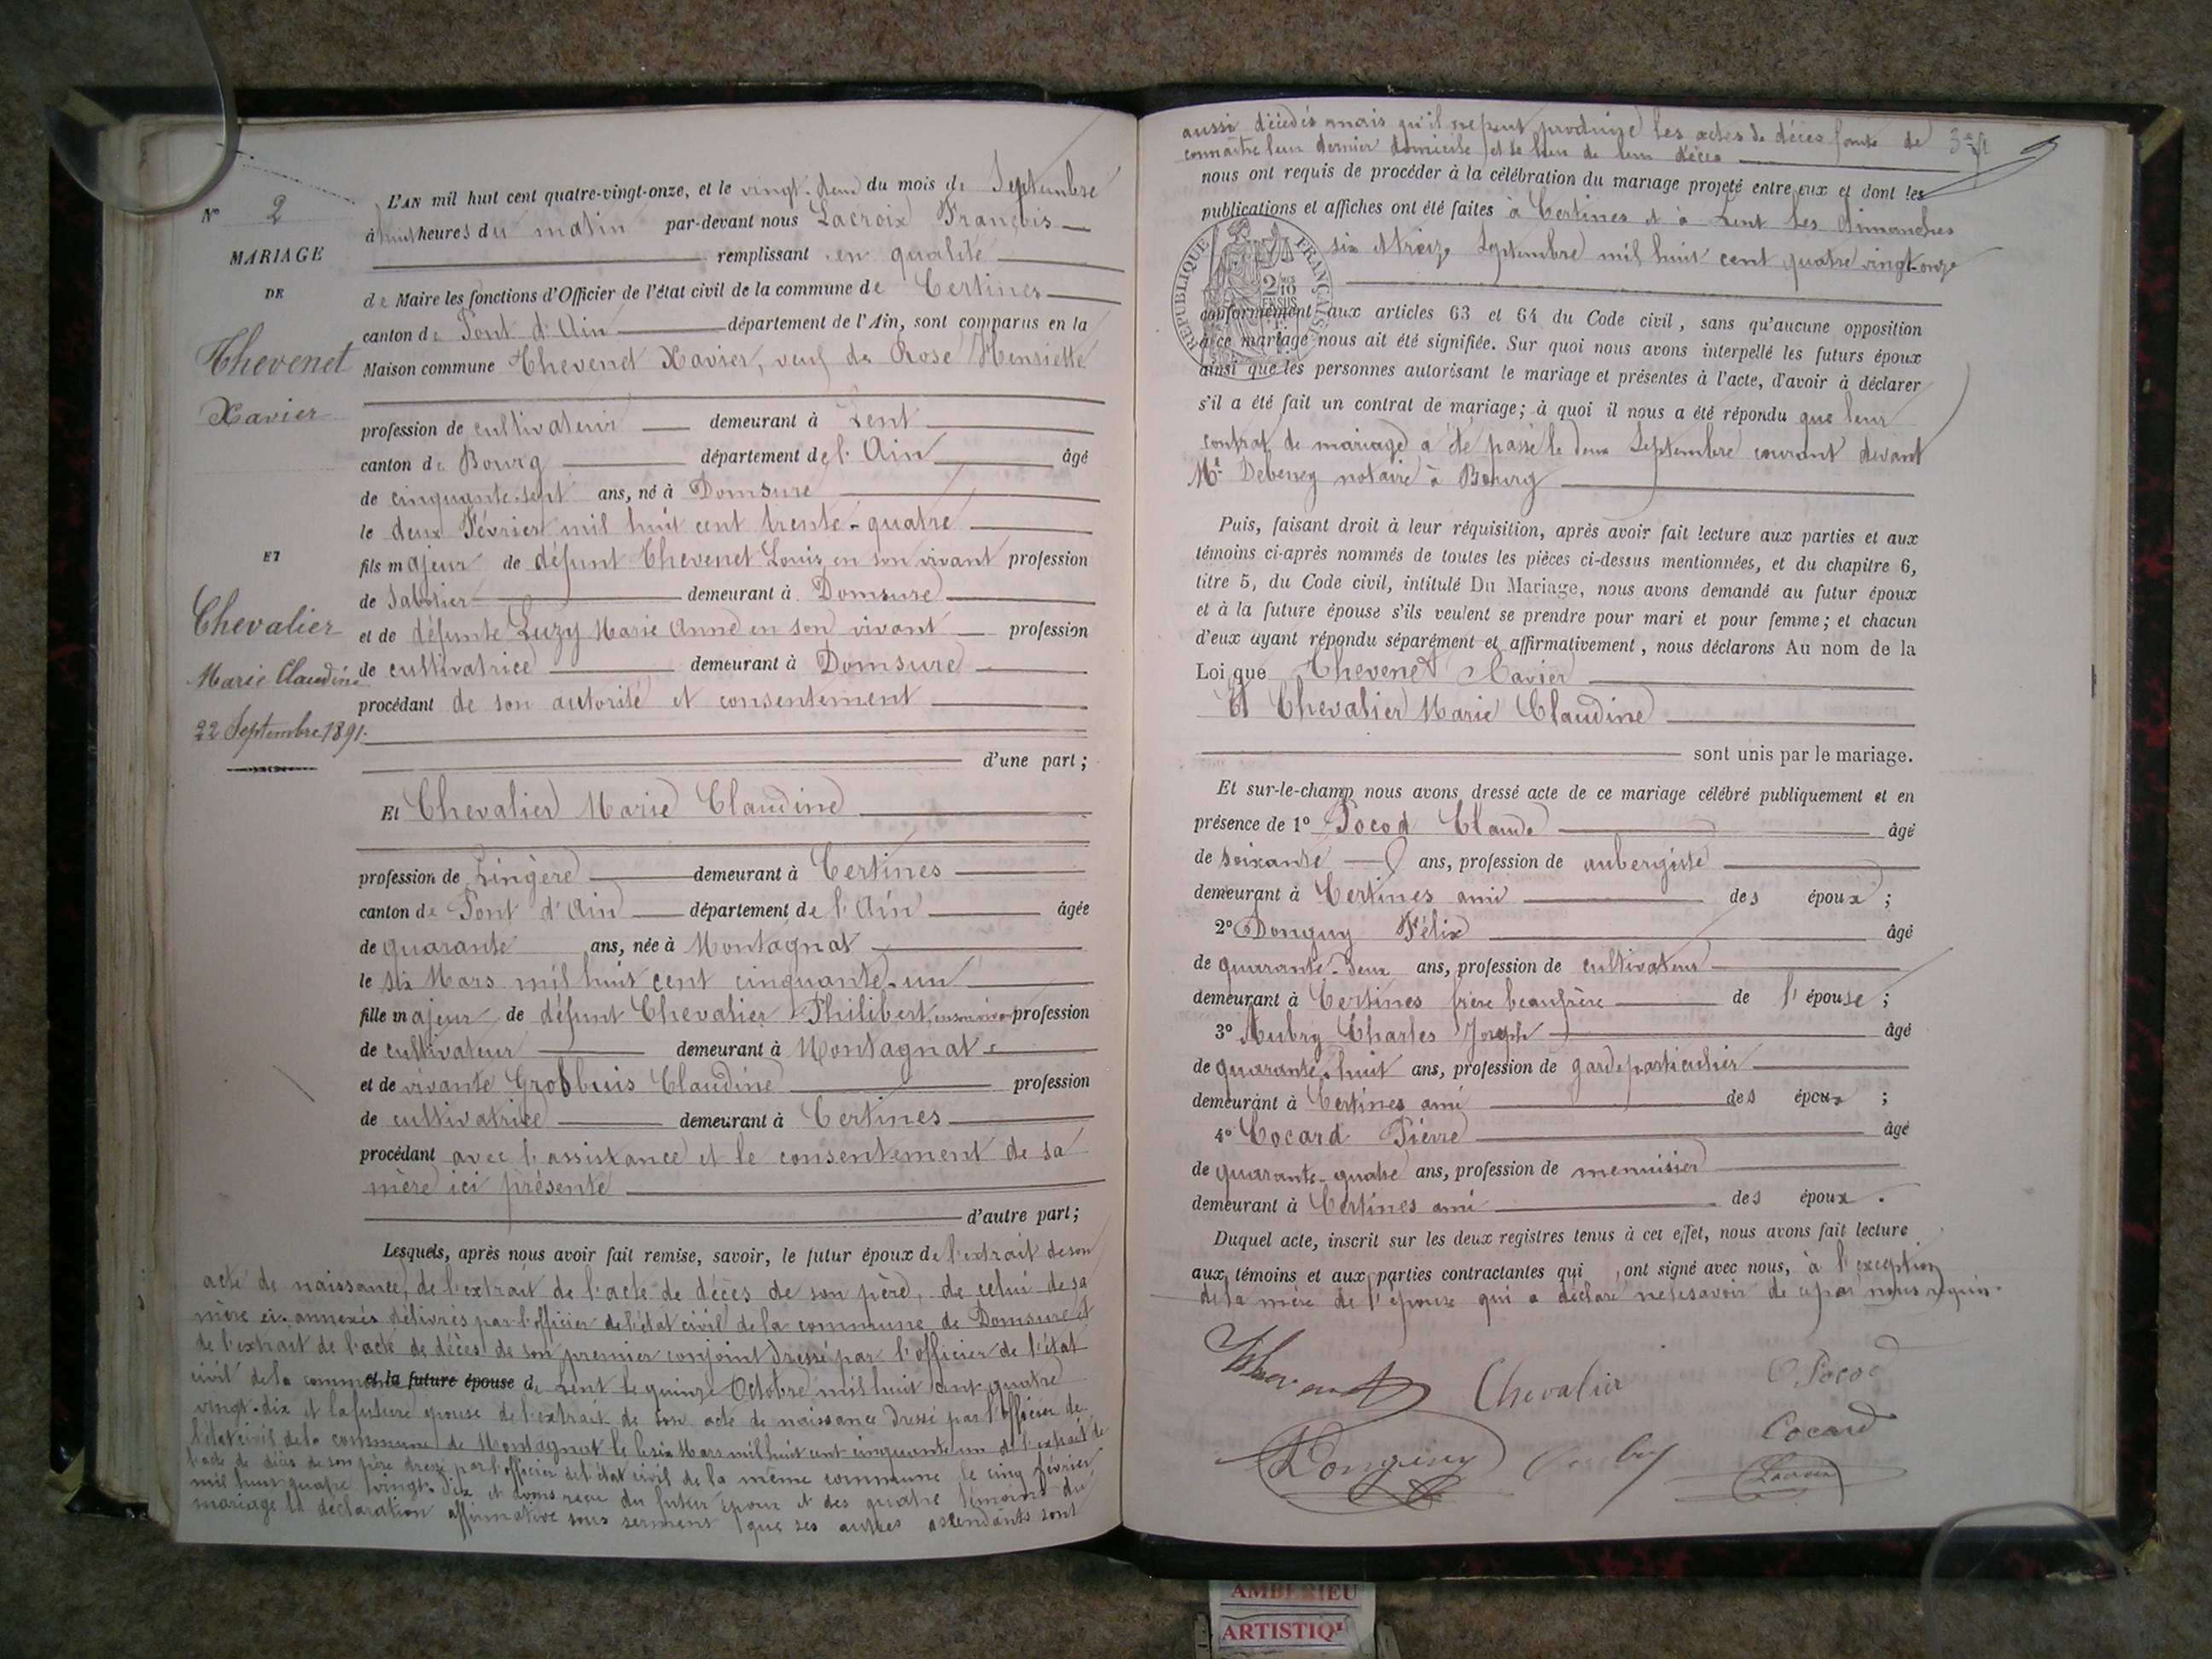 N° 2
MARIAGE
DE
Thevenet
Xavier
ET
Chevalier
Marie Claudine
22 Septembre 1891.
L'AN mil huit cent quatre-vingt-onze, et le vingt-deux du mois de Septembre
à huit heures du matin par-devant nous Lacroix François
remplissant en qualité
de Maire les fonctions d'Officier de l'état civil de la commune de Certines
canton de Pont d'Ain département de l'Ain, sont comparus en la
Maison commune Thevenet Xavier, veuf de Rose Henriette
profession de cultivateur demeurant à Lent
canton de Bourg département de l'Ain âgé
de cinquante-sept ans, né à Domsure
le deux Février mil huit cent trente-quatre
fils majeur de défunt Thevenet Louis en son vivant profession
de Sabotier demeurant à Domsure
et de défunte Luzy Marie Anne en son vivant profession
de cultivatrice demeurant à Domsure
procédant de son autorité et consentement
d'une part;
Et Chevalier Marie Claudine
profession de Lingère demeurant à Certines
canton de Pont d'Ain département de l'Ain âgée
de quarante ans, née à Montagnat
le six Mars mil huit cent cinquante-un
fille majeur de défunt Chevalier Philibert, en son vivant profession
de cultivateur demeurant à Montagnat
et de vivante Grosbuis Claudine profession
de cultivatrice demeurant à Certines
procédant avec l'assistance et le consentement de sa
mère ici présente
d'autre part;
Lesquels, après nous avoir fait remise, savoir, le futur époux de l'extrait de son
acte de naissance, de l'extrait de l'acte de décès de son père, de celui de sa
mère ci-annexés délivrés par l'officier de l'état civil de la commune de Domsure et
de l'extrait de l'acte de décès de son premier conjoint dressé par l'officier de l'état
civil de la commune et la future épouse de Lent le quinze Octobre mil huit cent quatre
vingt-dix et la future épouse de l'extrait de son acte de naissance dressé par l'officier de
l'état civil de la commune de Montagnat le six Mars mil huit cent cinquante un de l'extrait de
l'acte de décès de son père dressé par l'officier de l'état civil de la même commune le cinq février
mil huit quatre vingt-dix et avons reçu du futur époux et des quatre témoins du
mariage la déclaration affirmative sous serment que ses autres ascendants sont
aussi décédés mais qu'il ne peut produire les actes de décès faute de
connaître leur dernier domicile et le lieu de leur décès
nous ont requis de procéder à la célébration du mariage projeté entre eux et dont les
publications et affiches ont été faites à Certines et à Lent les Dimanches
six et treize Septembre mil huit cent quatre vingt-onze
RÉPUBLIQUE FRANÇAISE
2/10 EN SUS
conformément aux articles 63 et 64 du Code civil, sans qu'aucune opposition
à ce mariage nous ait été signifiée. Sur quoi nous avons interpellé les futurs époux
ainsi que les personnes autorisant le mariage et présentes à l'acte, d'avoir à déclarer
s'il a été fait un contrat de mariage; à quoi il nous a été répondu que leur
contrat de mariage a été passé le deux Septembre courant devant
Me Debeney notaire à Bourg
Puis, faisant droit à leur réquisition, après avoir fait lecture aux parties et aux
témoins ci-après nommés de toutes les pièces ci-dessus mentionnées, et du chapitre 6,
titre 5, du Code civil, intitulé Du Mariage, nous avons demandé au futur époux
et à la future épouse s'ils veulent se prendre pour mari et pour femme; et chacun
d'eux ayant répondu séparément et affirmativement, nous déclarons Au nom de la
Loi que Thevenet Xavier
Et Chevalier Marie Claudine
sont unis par le mariage.
Et sur-le-champ nous avons dressé acte de ce mariage célébré publiquement et en
présence de 1° Pocod Claude âgé
de soixante ans, profession de aubergiste
demeurant à Certines ami des époux;
2° Donguy Félix âgé
de quarante-deux ans, profession de cultivateur
demeurant à Certines frère beaufrère de l'épouse;
3° Aubry Charles Joseph âgé
de quarante-huit ans, profession de garde particulier
demeurant à Certines ami des époux;
4° Cocard Pierre âgé
de quarante-quatre ans, profession de menuisier
demeurant à Certines ami des époux.
Duquel acte, inscrit sur les deux registres tenus à cet effet, nous avons fait lecture
aux témoins et aux parties contractantes qui ont signé avec nous, à l'exception
de la mère de l'épouse qui a déclaré ne le savoir de ce par nous requis.
Thevenet Chevalier Pocod
Donguy Cocard
Lacroix
AMBERIEU
ARTISTIQ